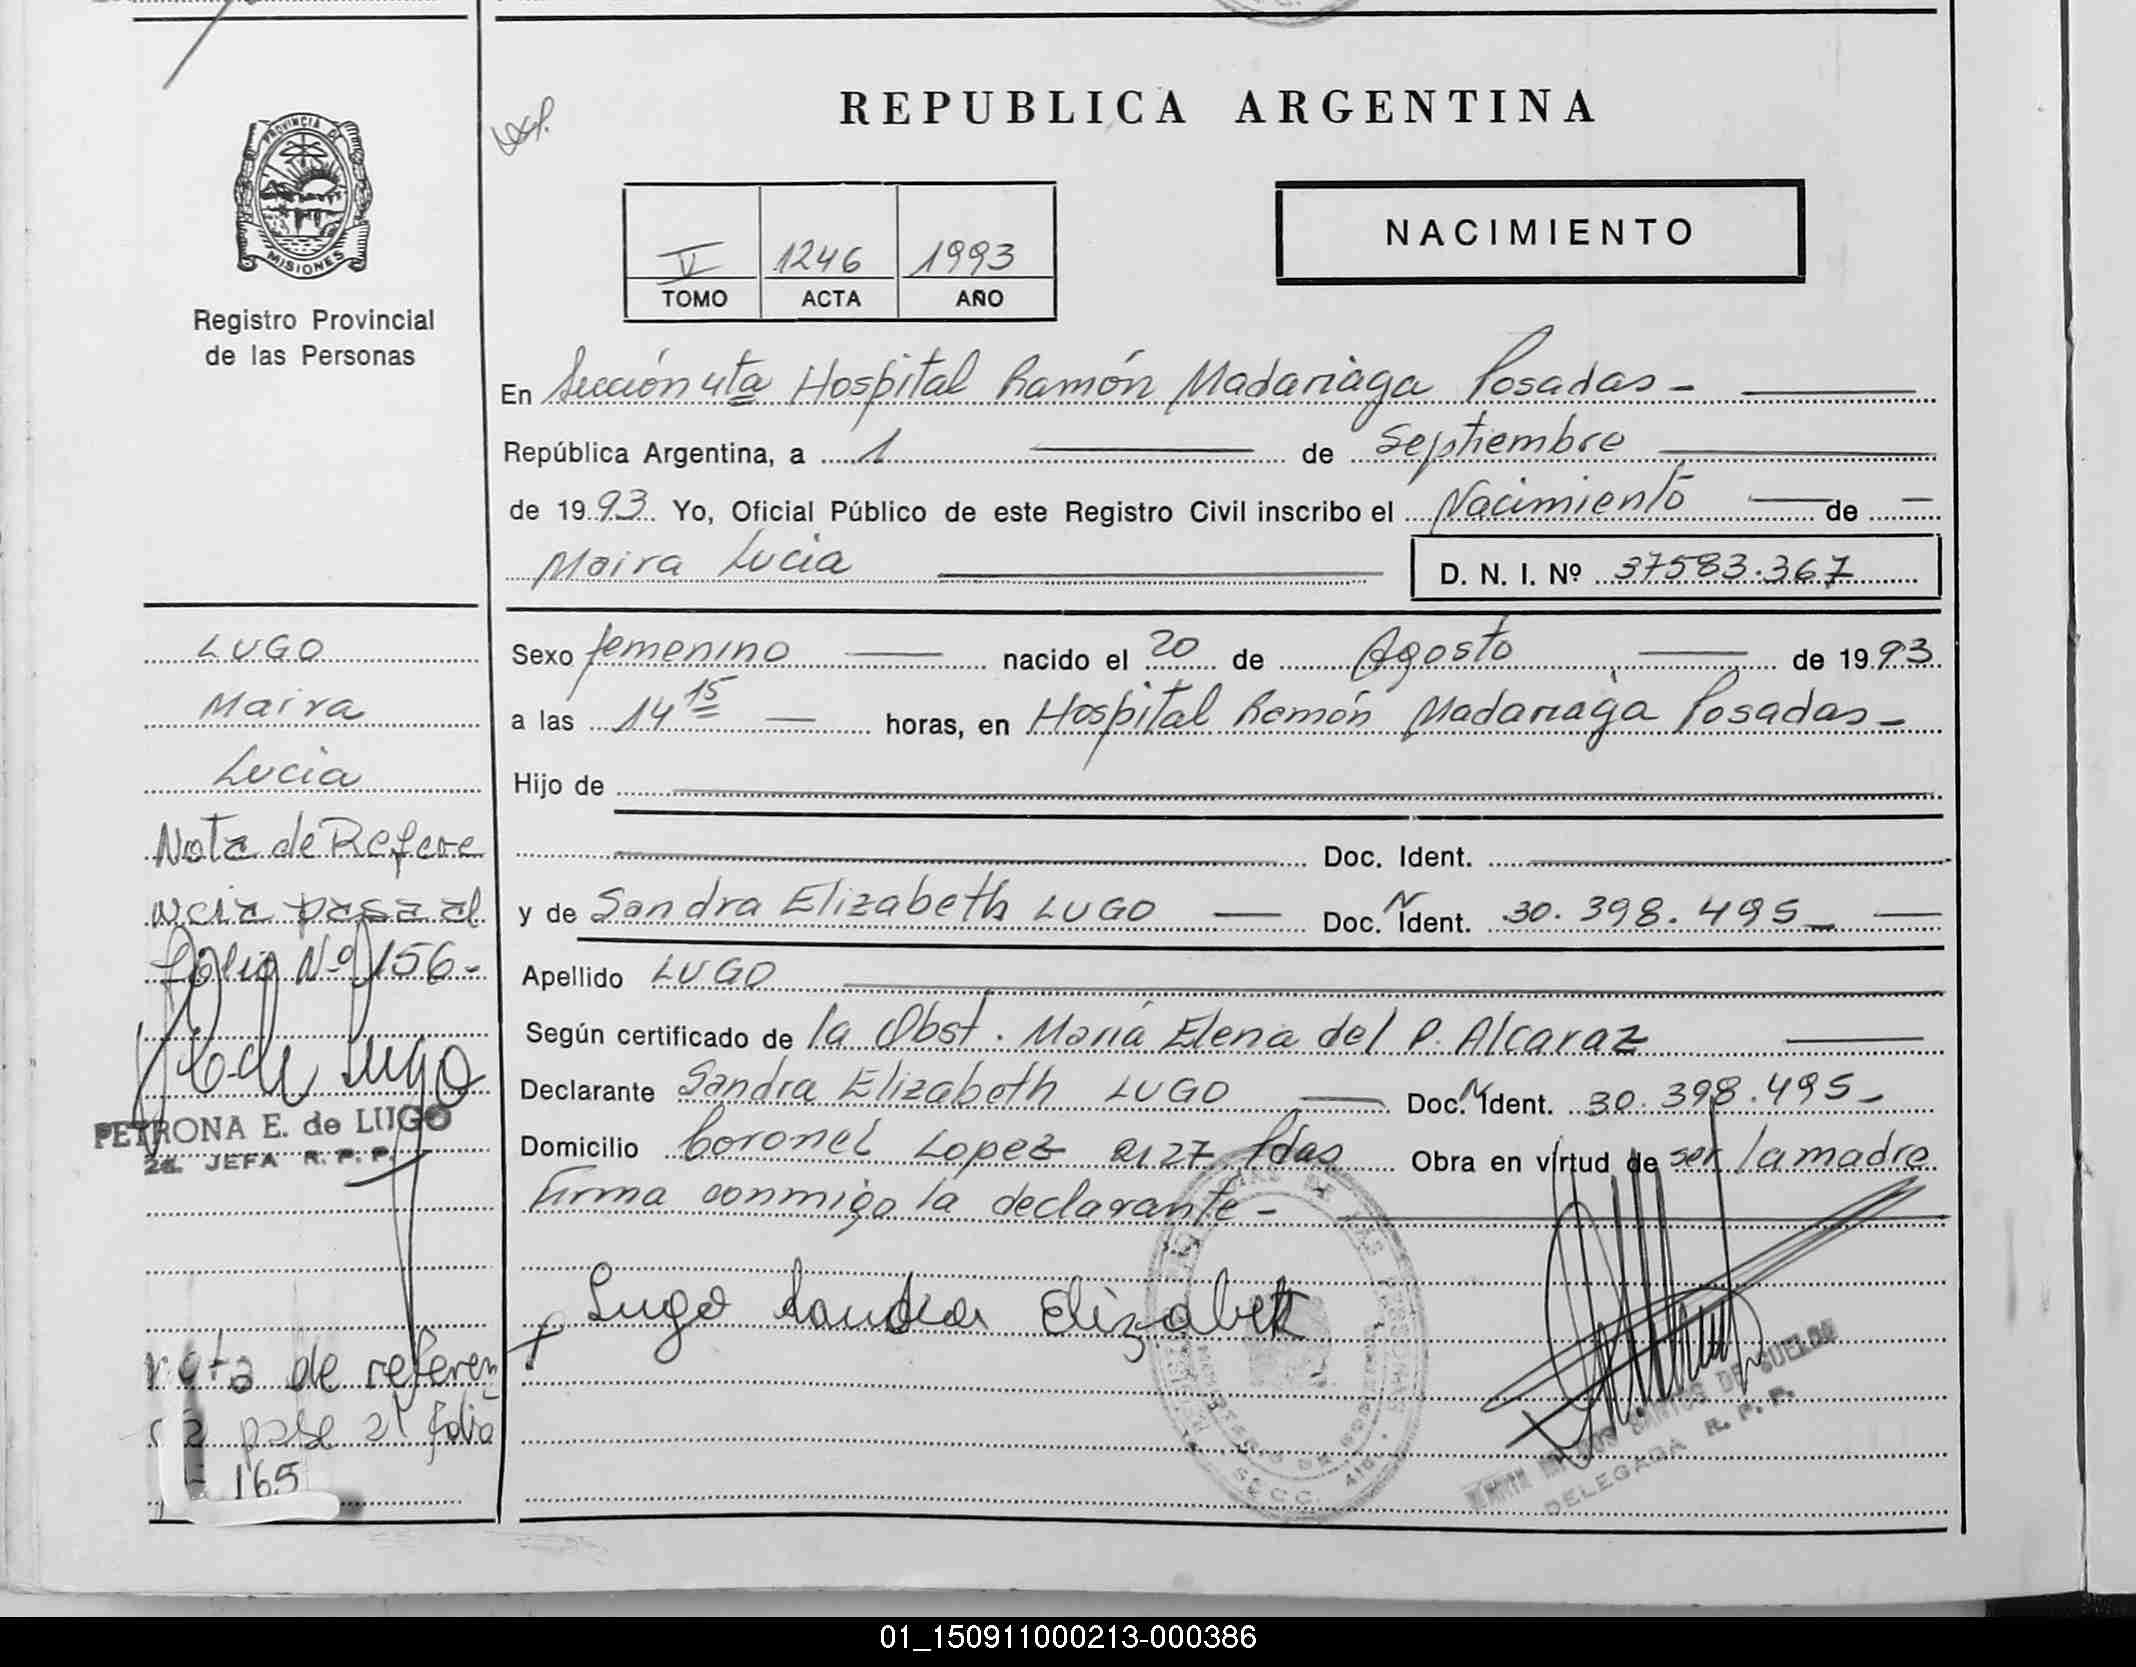 REPUBLICA ARGENTINA
PROVINCIA DE
MISIONES
Registro Provincial
de las Personas
V 1246 1993
TOMO ACTA AÑO
NACIMIENTO
En Sección 4ta Hospital Ramón Madariaga Posadas -
República Argentina, a 1 de Septiembre
de 1993 Yo, Oficial Público de este Registro Civil inscribo el Nacimiento de
Maira Lucia D. N. I. Nº 37583.367
Sexo femenino nacido el 20 de Agosto de 1993
a las 14 15 horas, en Hospital Ramón Madariaga Posadas -
Hijo de
Doc. Ident.
y de Sandra Elizabeth LUGO Doc. N Ident. 30.398.495 -
Apellido LUGO
Según certificado de la Obst. María Elena del P. Alcaraz
Declarante Sandra Elizabeth LUGO Doc. N Ident. 30.398.495 -
Domicilio Coronel Lopez 2127 Pdas Obra en virtud de ser la madre
Firma conmigo la declarante -
Lugo Sandra Elizabet
DELEGADA R. P. P.
LUGO
Maira
Lucia
Nota de Refere
ncia pasa al
folio Nº 156 -
PETRONA E. de LUGO
2a. JEFA R. P. P.
nota de referen
pase al folio
165
01_150911000213-000386